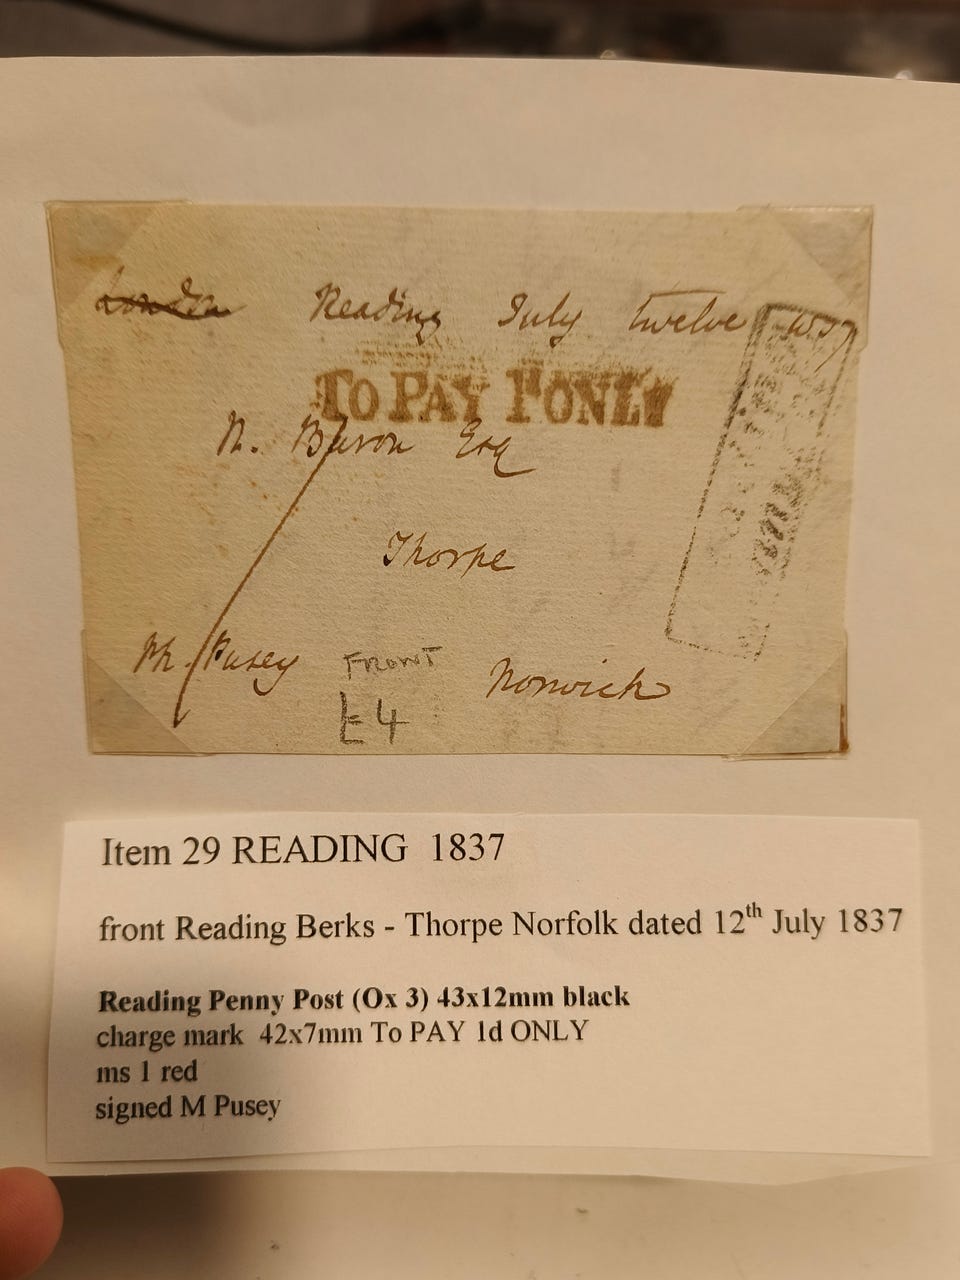 London Reading July twelve
TO PAY 1D ONLY
N. Bacon Esq
Thorpe
Ph. Pusey
FRONT
Norwich
£4
Item 29 READING 1837
front Reading Berks - Thorpe Norfolk dated 12th July 1837
Reading Penny Post (Ox 3) 43x12mm black
charge mark 42x7mm To PAY 1d ONLY
ms 1 red
signed M Pusey